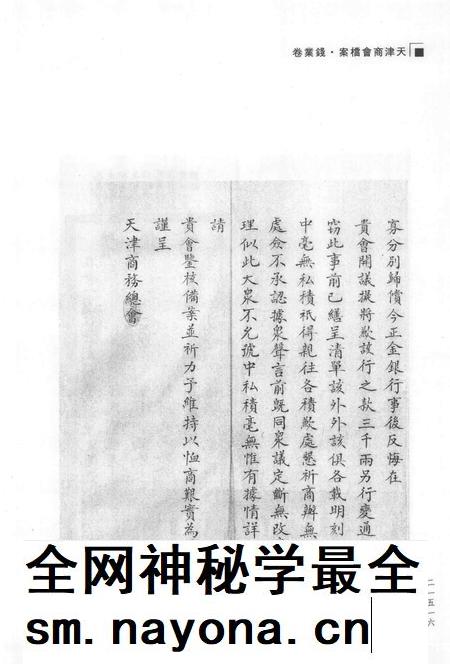 天津商會檔案·錢業卷
寡分別歸償今正金銀行事後反悔在
貴會開議擬將歉該行之款三千兩另行變通
窃此事前已繕呈清單該外外該俱各載明刻
中毫無私積祇得親往各積歉處懇祈商辦無
處僉不承認據衆聲言前既同衆議定斷無改
理似此大衆不允號中私積毫無惟有據情詳
請
貴會鑒核備案並祈力予維持以恤商艱實為
謹呈
天津商務總會
二一五一六
全网神秘学最全
sm.nayona.cn